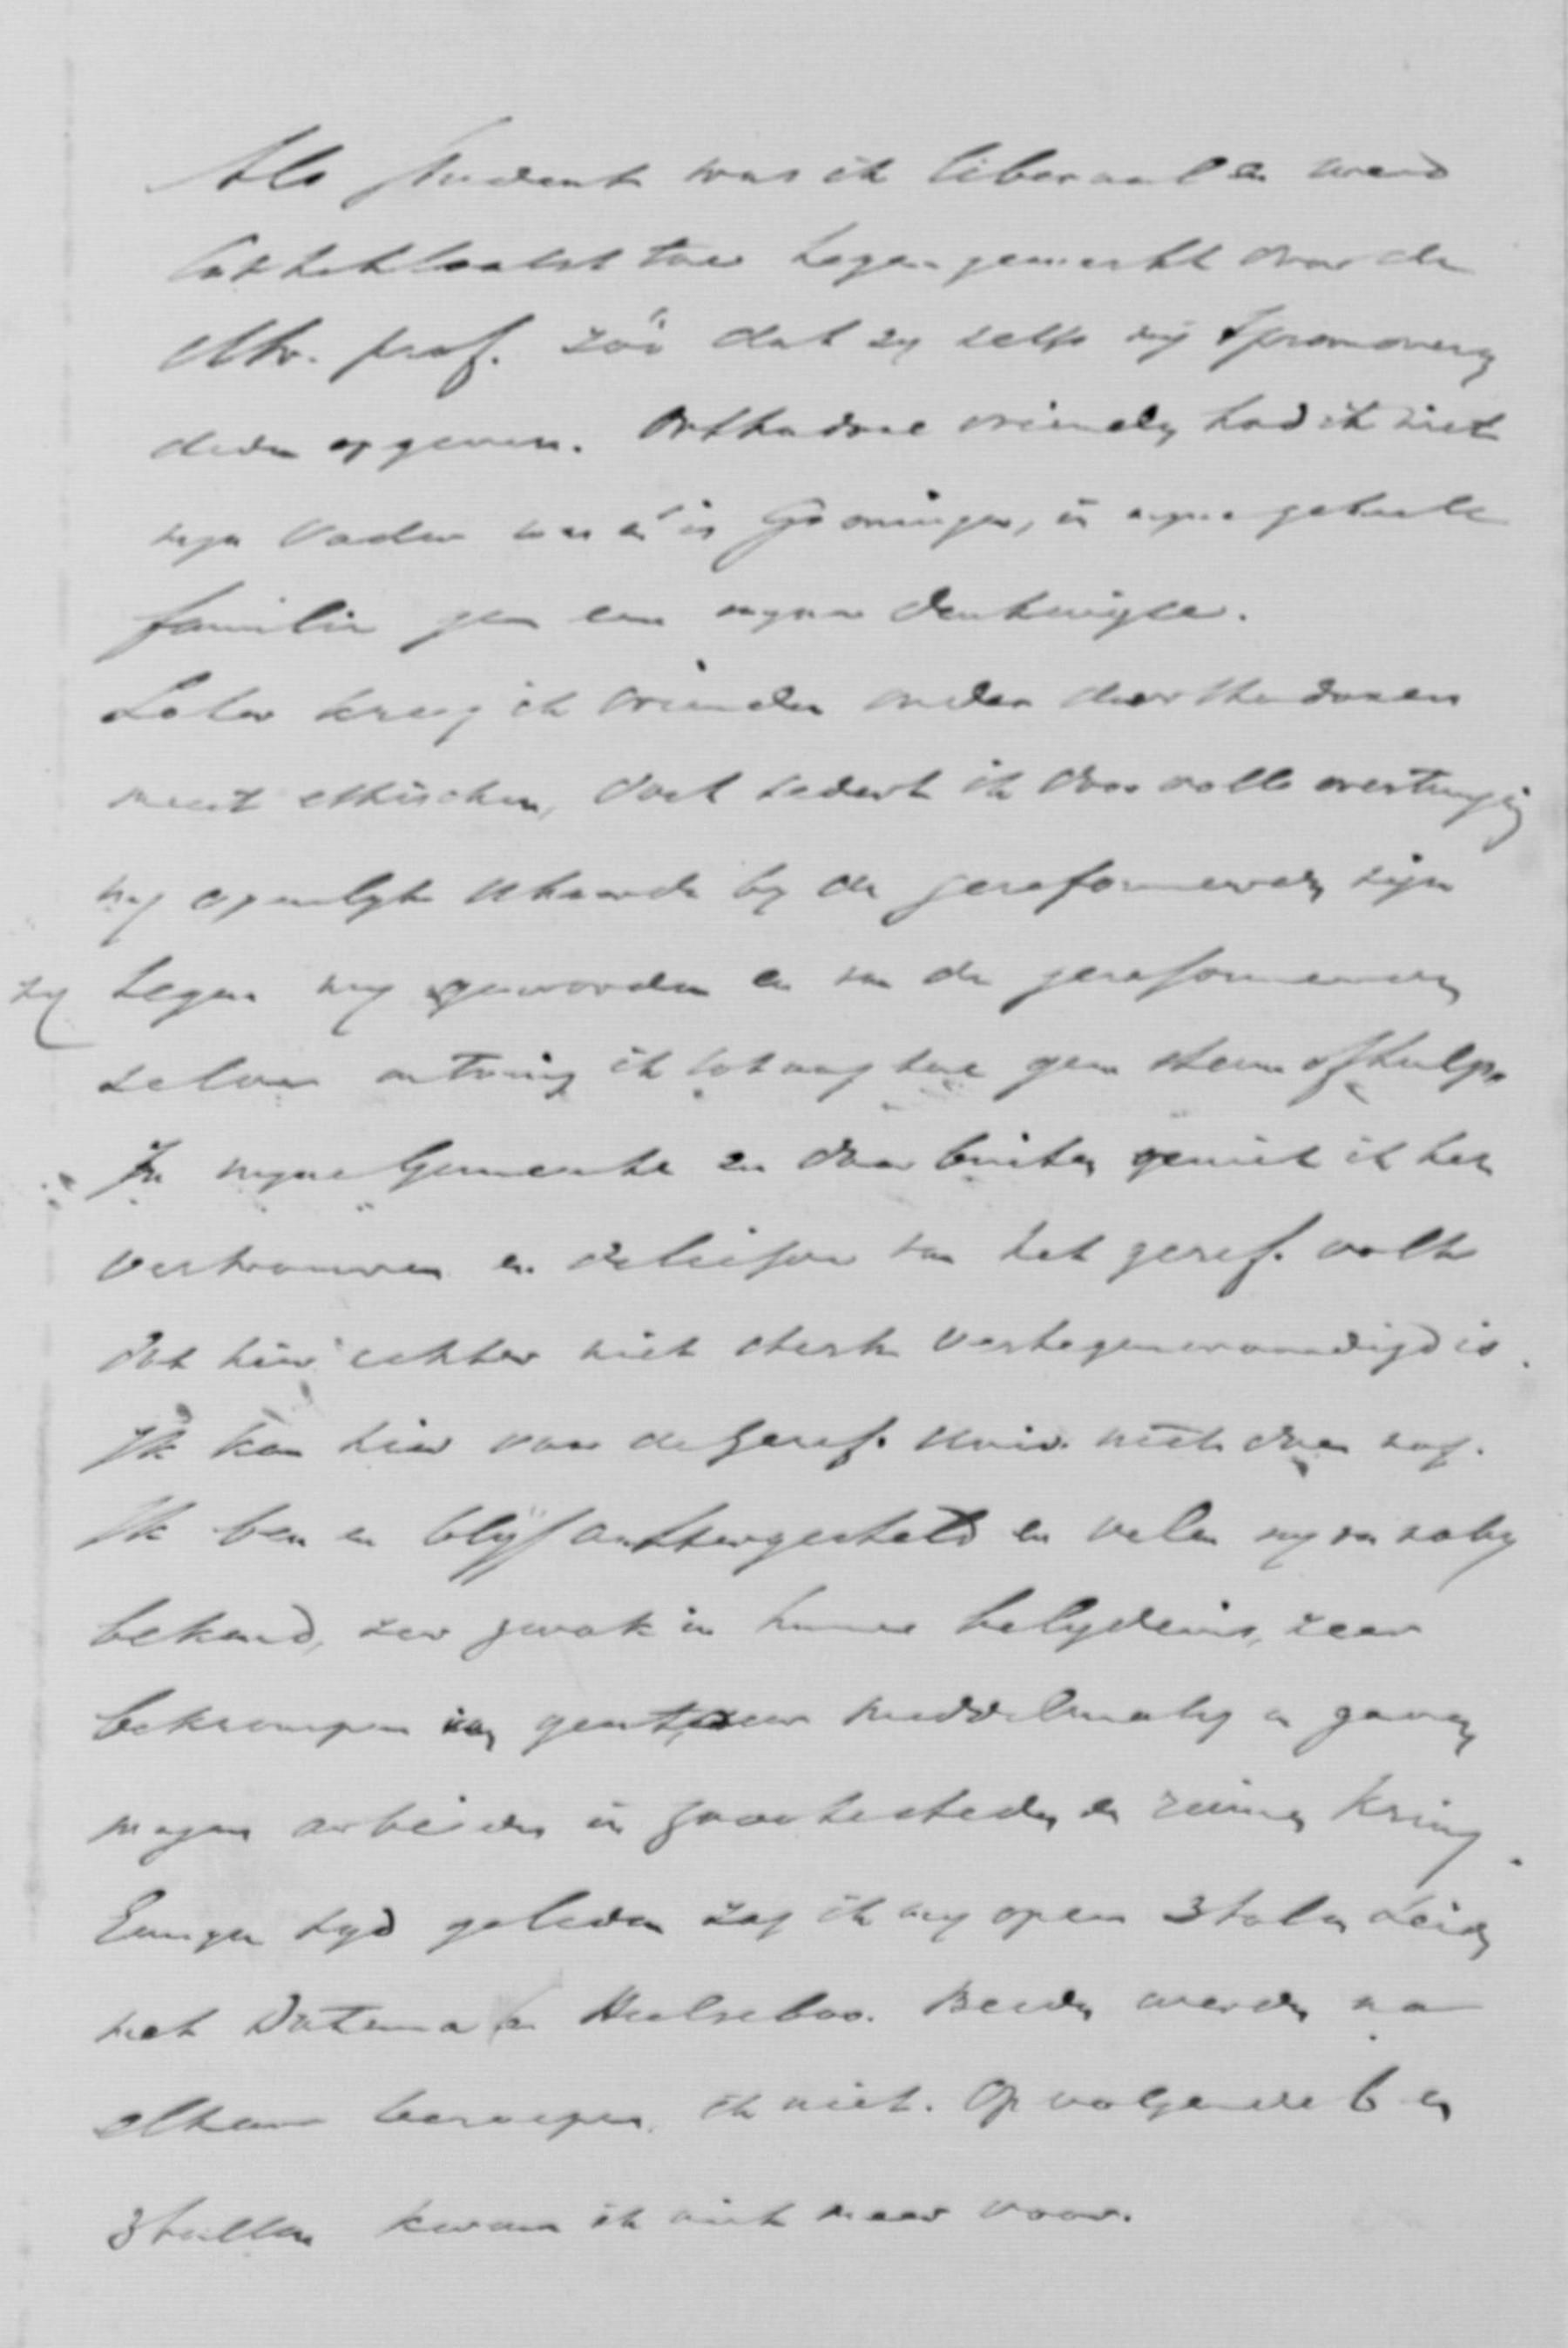 Als student was ik liberaal en werd
tot het laatst toe tegengewerkt door de
Utr. prof. zóó dat zij zelfs mij promoveeren
deden opgeven. Orthodoxe vrienden had ik niet
mijn Vader was en is Groninger, in mijne geheele
familie geen een mijner denkwijze.
Later kreeg ik vrienden onder de orthodoxen
meest ethischen, doch sedert ik door volle overtuiging
mij openlijk schaarde bij de gereformeerden zijn
zij tegen mij geworden en van de gereformeerden
zelven ontving ik tot nog toe geen steun of hulp.
In mijne Gemeente en daar buiten geniet ik het
vertrouwen en de liefde van het geref. volk
dat hier echter niet sterk vertegenwoordigd is.
Ik kan hier voor de Geref. Univ. niets doen nog.
Ik ben en blijf achtergesteld en velen mij van nabij
bekend, zeer zwak in hunne belijdenis, zeer
bekrompen van geest, zeer middelmatig in gaven
mogen arbeiden in groote steden en ruimen kring.
Eenigen tijd geleden zag ik mij op een 3tal in Leiden
met Datema en Hulsebos. Beiden werden na
elkaar beroepen, ik niet. Op volgende 6 en
3tallen kwam ik niet meer voor.